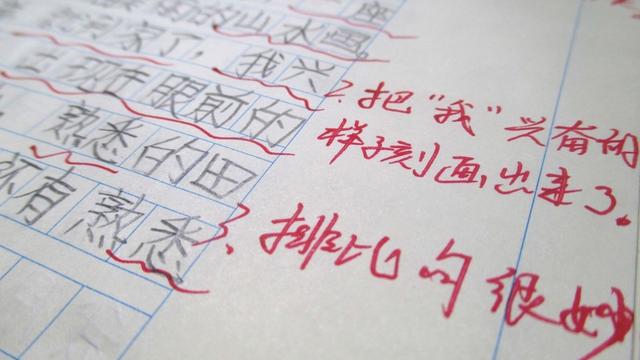 座
的山水画
家了，我兴
出现在眼前的
熟悉的田
还有熟悉
2.把“我”兴奋的
样子刻画出来了。
3.排比句很妙